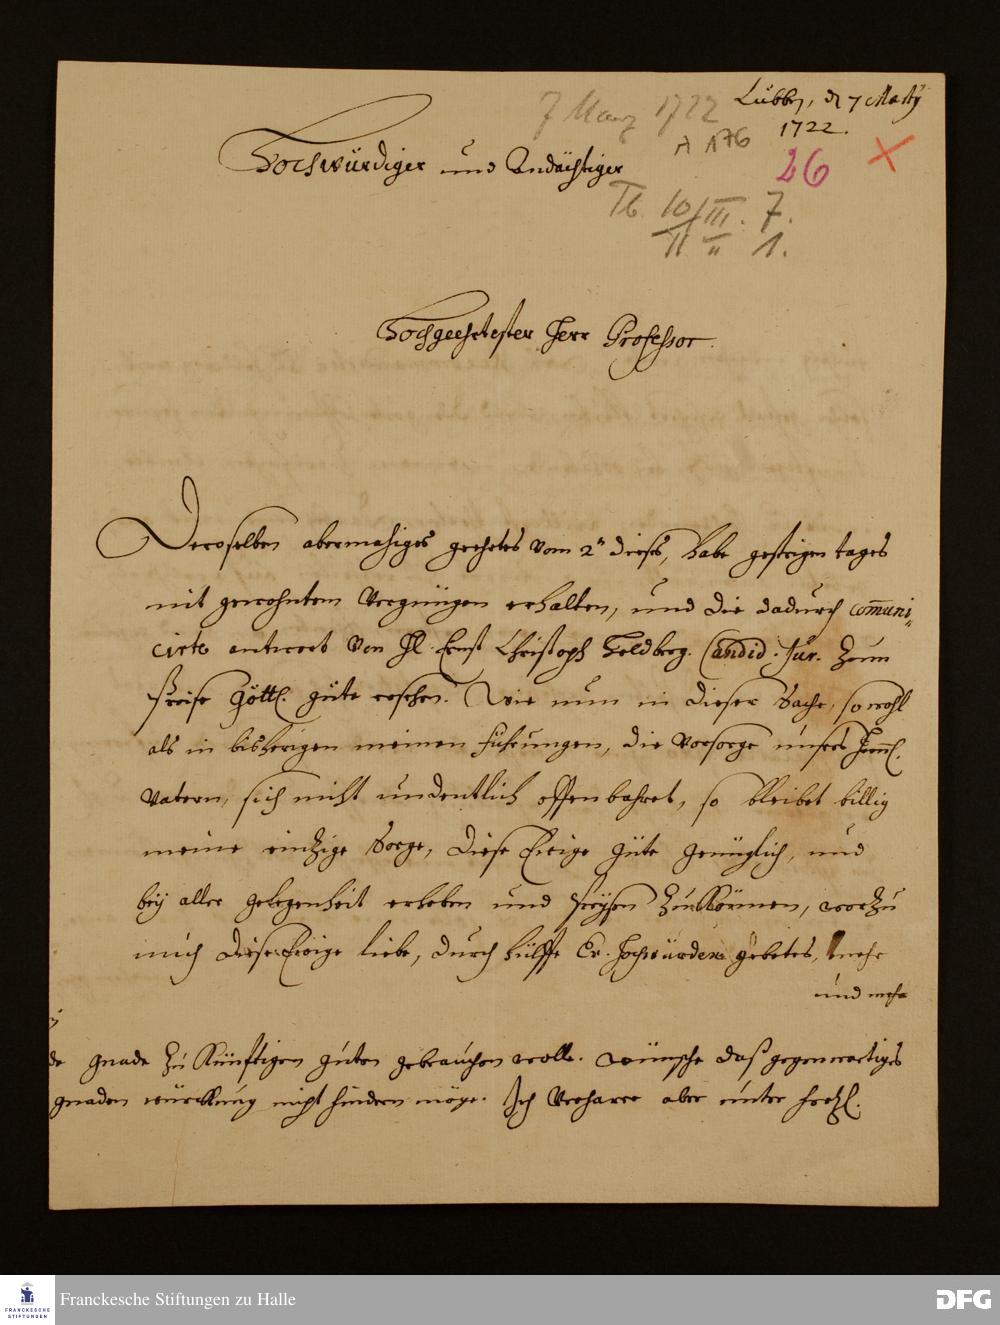 Lübben, d 7 Martij
1722.
7 März 1722
A 176
26
Hochwürdiger und Andächtiger
Tb. 10/III. 7.
II II 1.
Hochgeehrtester Herr Professor.
Deroselben abermahliges geehrtes vom 2n dieses, habe gestrigen tages
mit gewohntem Vergnügen erhalten, und die dadurch com̄uni-
cirte antwort von H. Ernst Christoph Feldberg. Candid. Jur. zum
Preise Göttl. güte ersehen. Wie nun in dieser Sache, so wohl
als in bisherigen meinen führungen, die Vorsorge unsers Himl.
Vatern, sich nicht undeutlich offenbahret, so bleibet billig
meine eintzige Sorge, diese Ewige güte genüglich, und
bey aller gelegenheit erheben und preysen zu können, worzu
mich diese Ewige liebe, durch hülffe Er. Hochwürden gebetes, mehr
und mehr
gnade zu künftigen guten gebrauchen wolle. wünsche daß gegenwertiges
gnaden würckung nicht hindern möge. Ich verharre aber unter hertzl.
Franckesche Stiftungen zu Halle
FRANCKESCHE
STIFTUNGEN
DFG